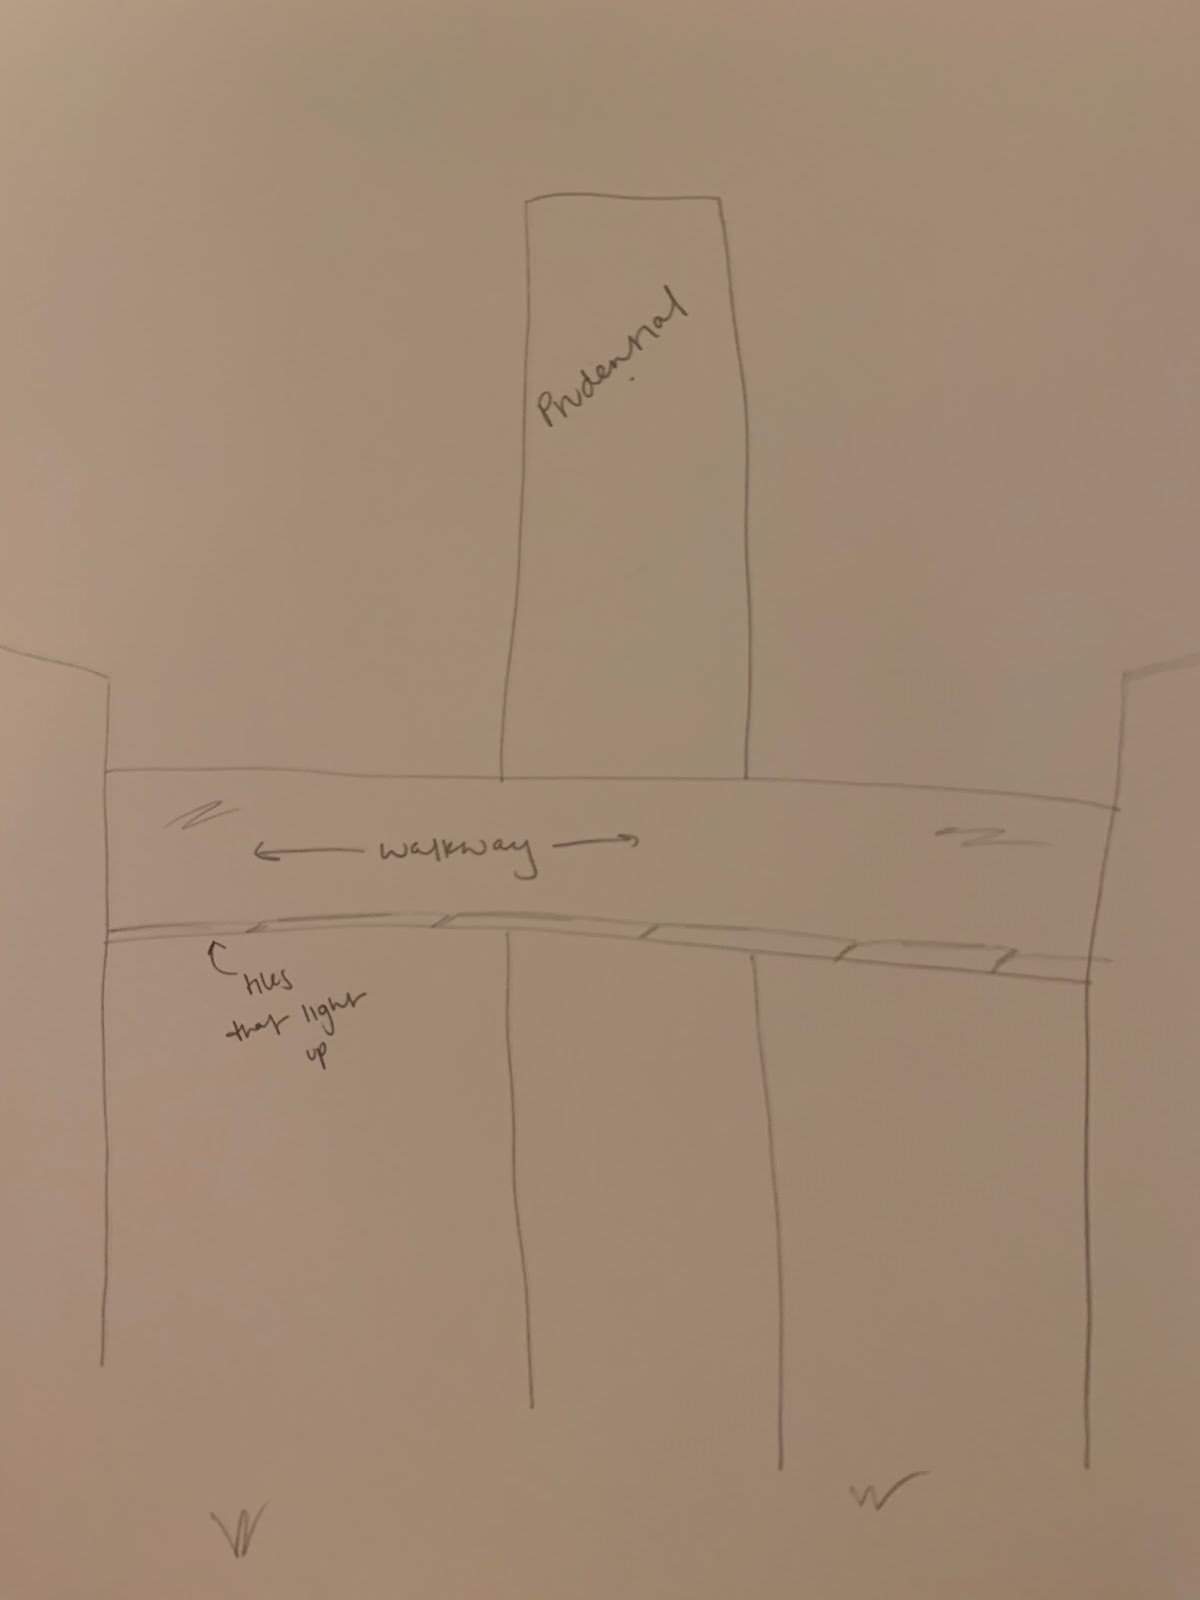 Prudential
← walkway →
tiles
that light
up